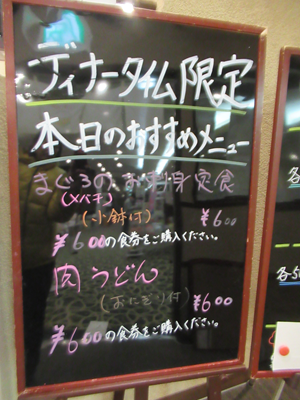 ディナータイム限定
本日のおすすめメニュー
まぐろのお刺身定食
(メバチ)
(小鉢付) ¥600
¥600の食券をご購入ください。
肉うどん
(おにぎり付) ¥600
¥600の食券をご購入ください。
各
各50